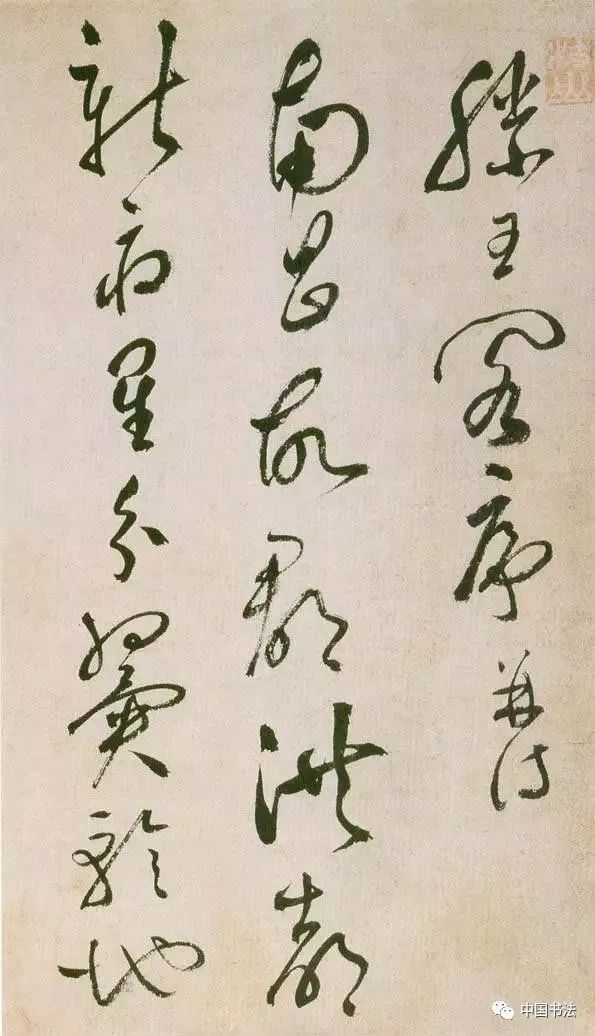 滕王閣序并詩
南昌故郡洪都
新府星分翼軫地
中国书法